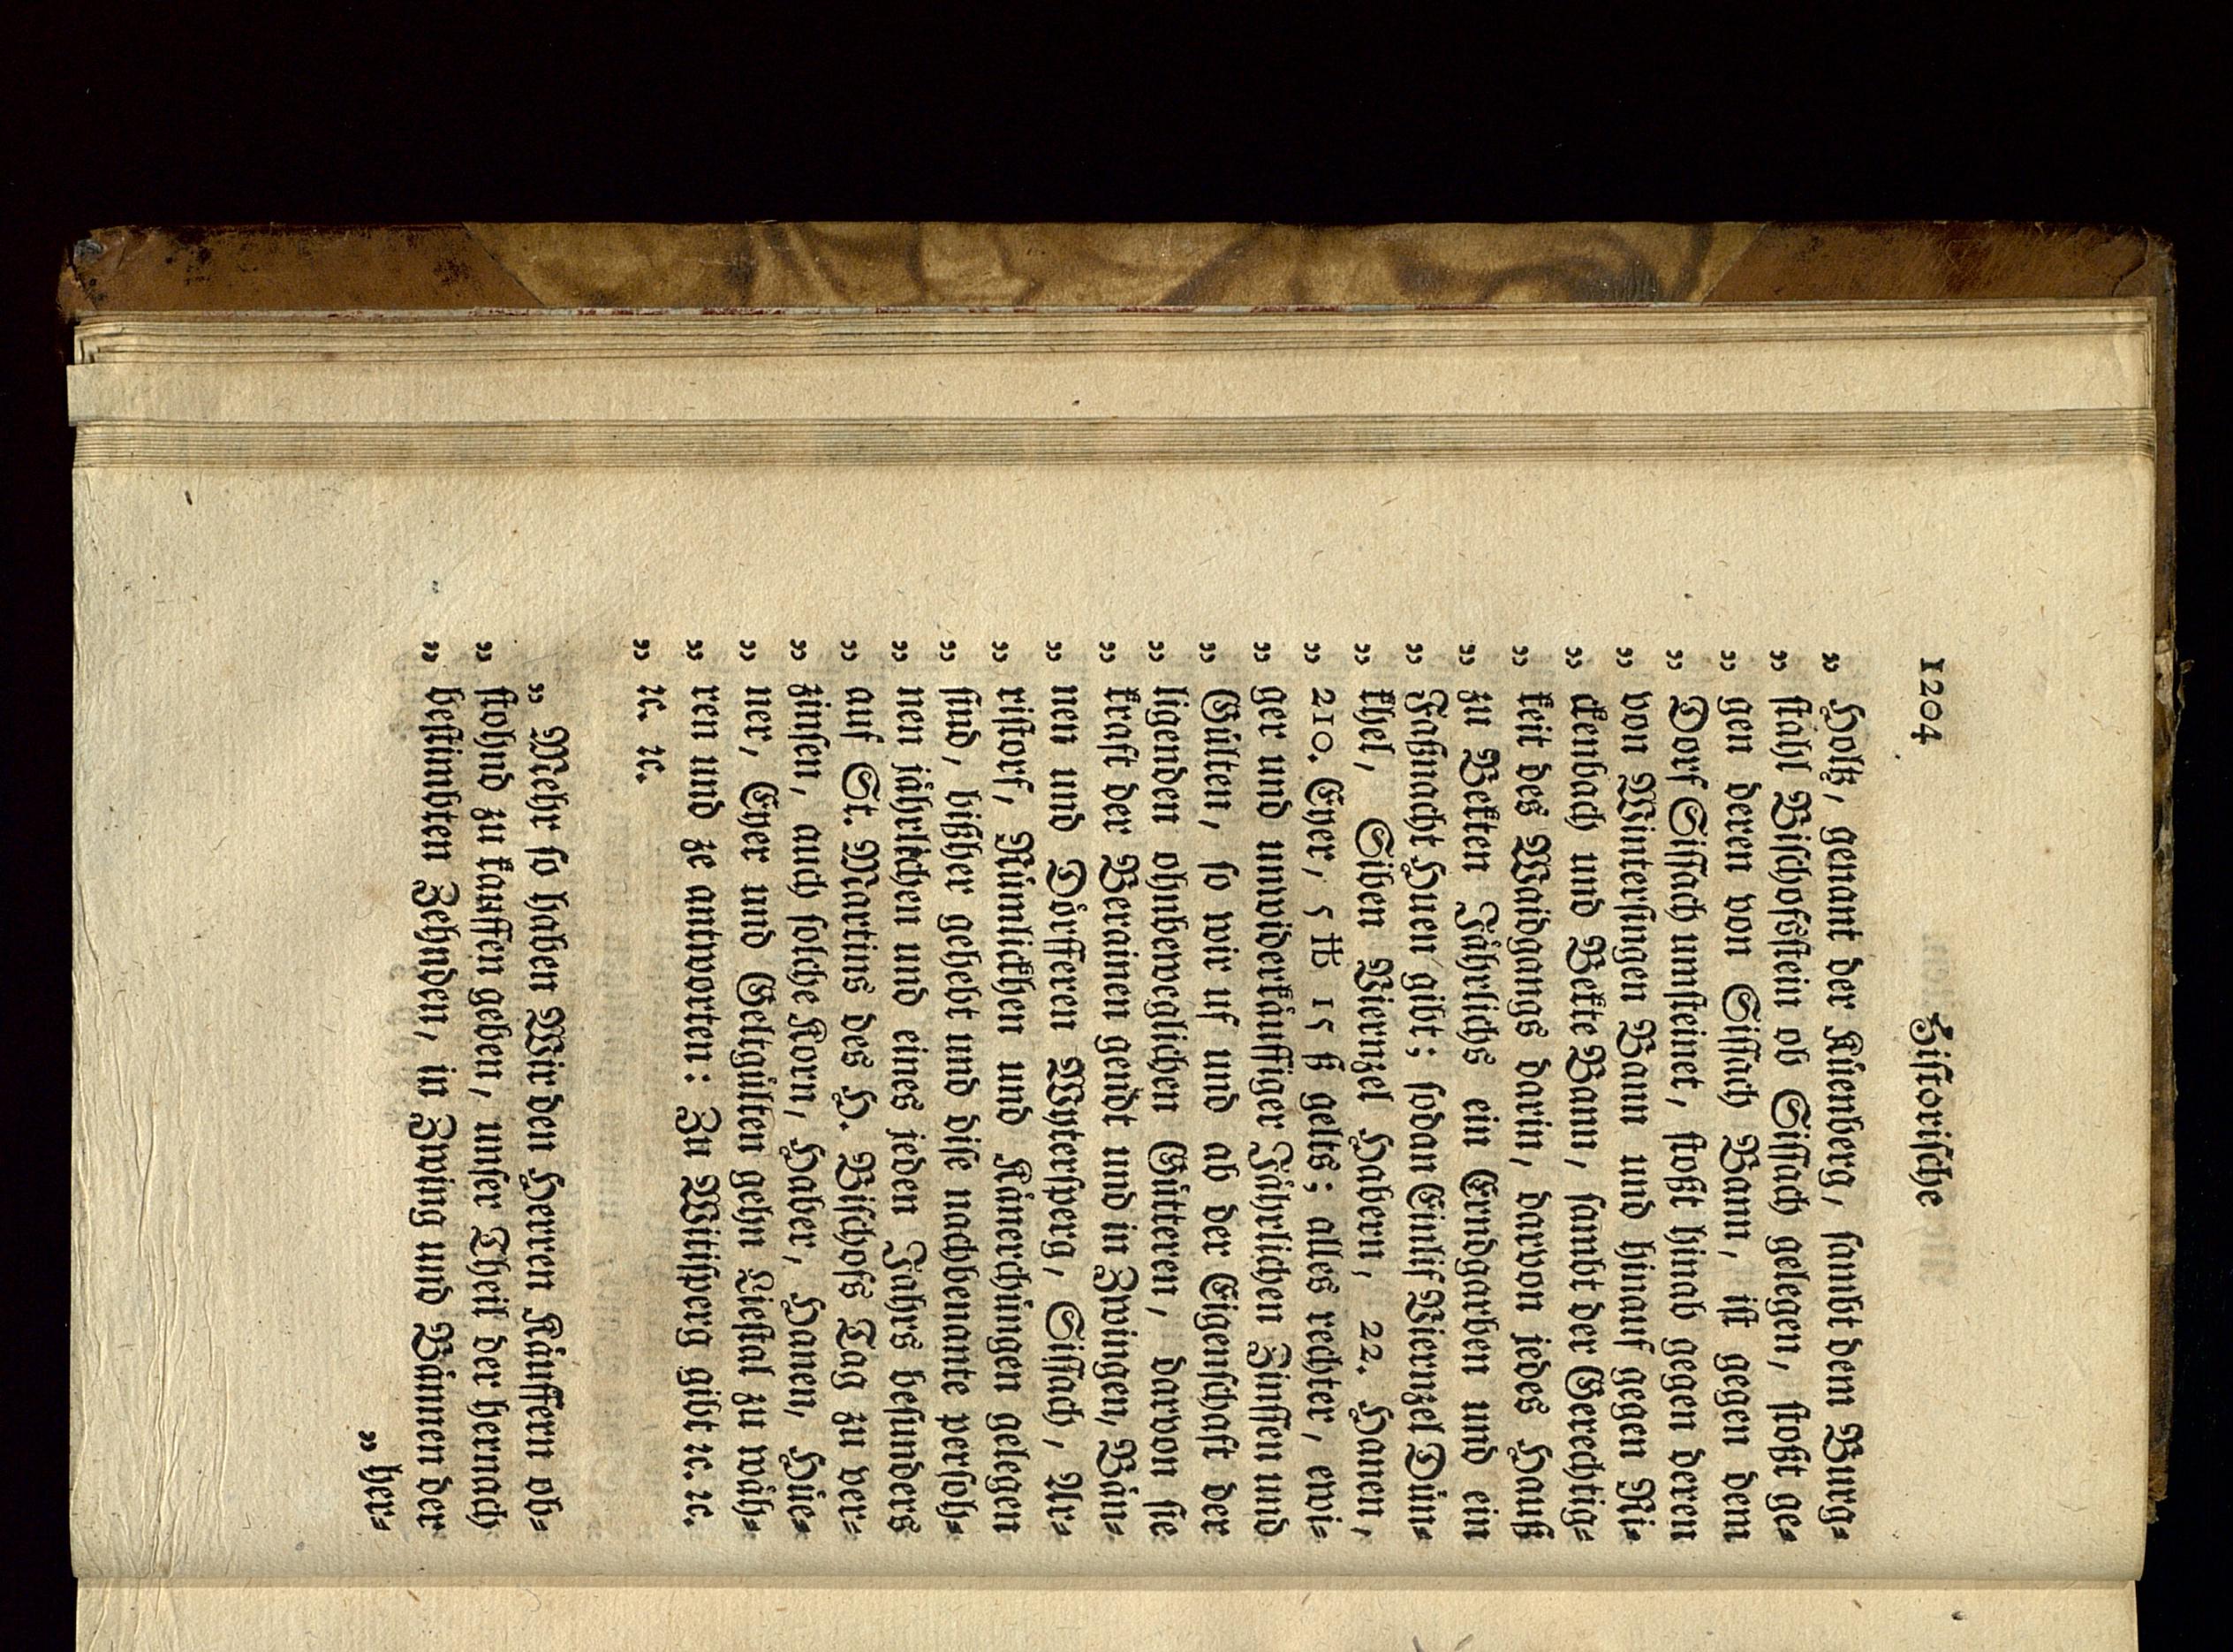 1204 Historische
„ Holtz, genant der Kienberg, sambt dem Burg⸗
„ stahl Bischofsstein ob Sissach gelegen, stoßt ge⸗
„ gen deren von Sissach Bann, ist gegen dem
„ Dorf Sissach umsteinet, stoßt hinab gegen deren
„ von Wintersingen Bann und hinauf gegen Ri⸗
„ ckenbach und Bekte Bann, sambt der Gerechtig⸗
„ keit des Waidgangs darin, darvon jedes Hauß
„ zu Bekten Jährlichs ein Erndgarben und ein
„ Faßnacht Huen gibt; sodan Einlif Viernzel Din⸗
„ khel, Siben Viernzel Habern, 22. Hanen,
„ 210. Eyer, 5 ℔ 15 ß gelts; alles rechter, ewi⸗
„ ger und unwiderkäuffiger Jährlichen Zinssen und
„ Gülten, so wir uf und ab der Eigenschaft der
„ ligenden ohnbeweglichen Gütteren, darvon sie
„ kraft der Berainen gendt und in Zwingen, Bän⸗
„ nen und Dörfferen Wytersperg, Sissach, Ar⸗
„ ristorf, Nünlickhen und Känerchingen gelegen
„ sind, bißher gehebt und dise nachbenante persoh⸗
„ nen jährlichen und eines jeden Jahrs besunders
„ auf St. Martins des H. Bischofs Tag zu ver⸗
„ zinsen, auch solche Korn, Haber, Hanen, Hüe⸗
„ ner, Eyer und Geltgülten gehn Liestal zu wäh⸗
„ ren und ze antworten: Zu Witisperg gibt ꝛc. ꝛc.
„ ꝛc. ꝛc.
„ Mehr so haben Wir den Herren Käuffern ob⸗
„ stohnd zu kauffen geben, unser Theil der hernach
„ bestimbten Zehnden, in Zwing und Bännen der
„ her⸗